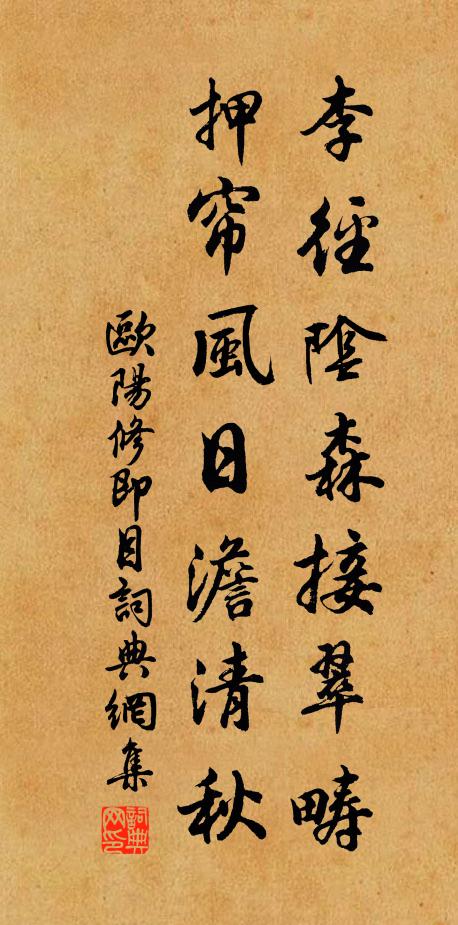 李徑陰森接翠疇
押帘風日澹清秋
歐陽修即目詞典網集
詞典网印